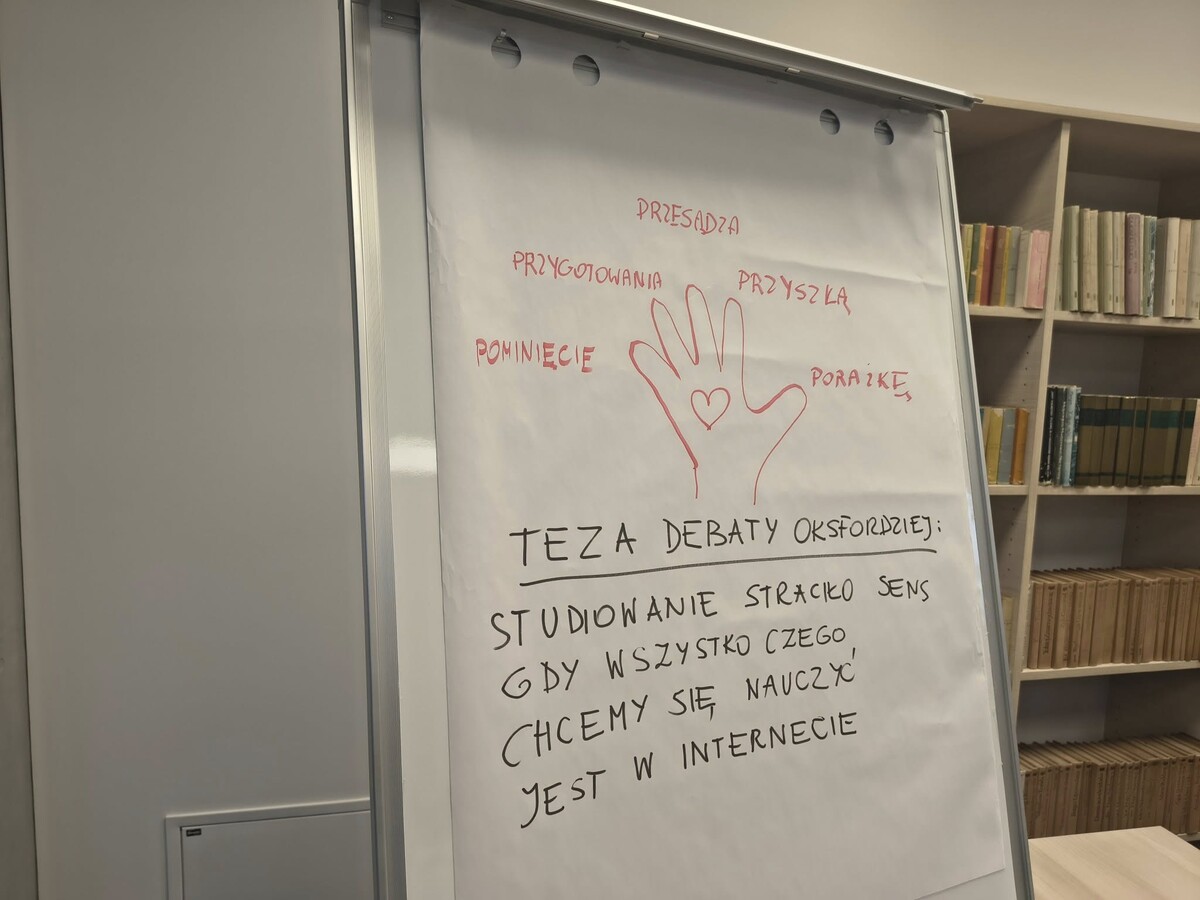 POMINIĘCIE
PRZYGOTOWANIA
PRZESĄDZA
PRZYSZŁĄ
PORAŻKĘ
TEZA DEBATY OKSFORDZIEJ:
STUDIOWANIE STRACIŁO SENS
GDY WSZYSTKO CZEGO
CHCEMY SIĘ NAUCZYĆ
JEST W INTERNECIE